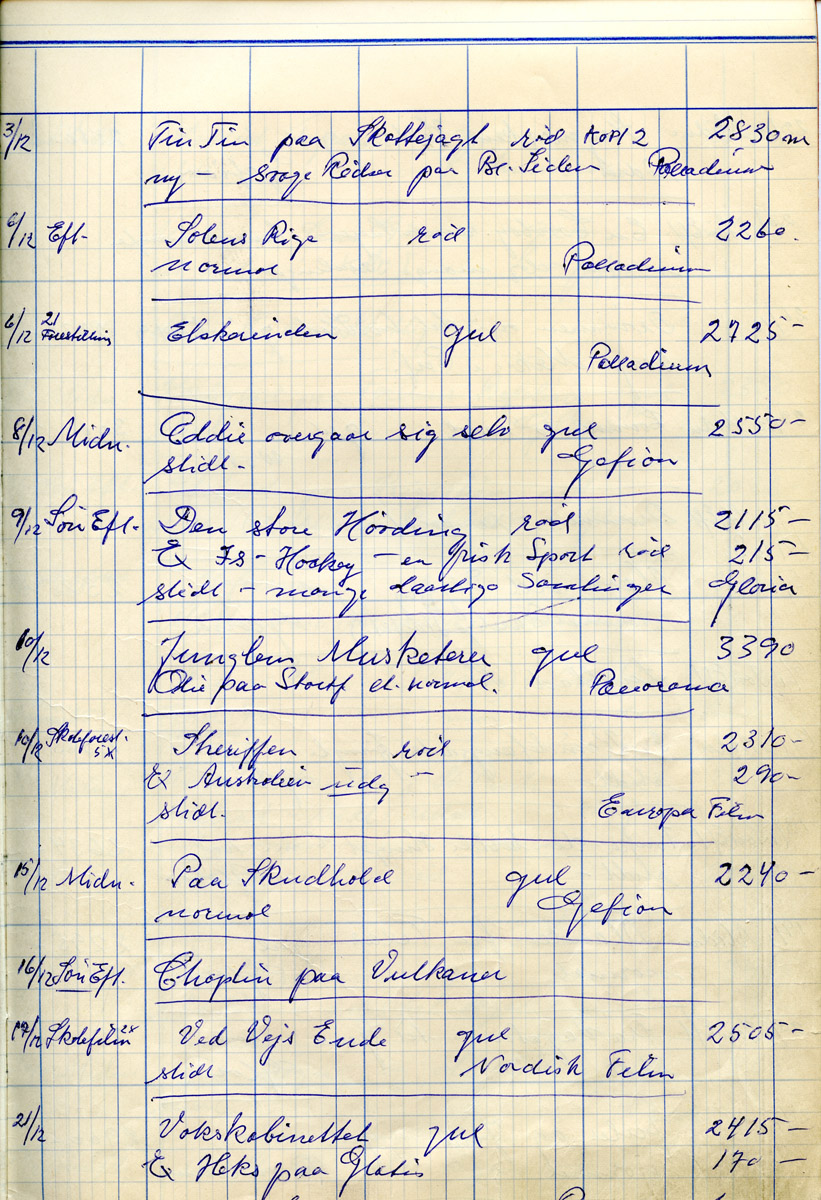 3/12 Tin Tin paa Skattejagt rød KOPI 2 2830 m
ny - Palladium
6/12 Eft- Solens Rige rød 2260.
normal Palladium
6/12 21 Forestilling Elskerinden gul 2725 -
Palladium
8/12 Midn. Eddie overgaar sig selv gul 2550 -
slidt - Gefion
9/12 Søn Eft- Den store Hørding rød 2115 -
& Is-Hockey - en frisk Sport rød 215 -
slidt - mange daarlige Samlinger Gloria
10/12 Junglens Musketerer gul 3390
Olie paa Startf el. normal. Panorama
10/12 Skoleforest. 5x Sheriffen rød 2310 -
& Australien udg - 290 -
slidt. Europa Film
15/12 Midn. Paa Skudhold gul 2240 -
normal Gefion
16/12 Søn Eft. Chaplin paa Vulkaner
17/12 Skolefilm 2x Ved Vejs Ende gul 2505 -
slidt Nordisk Film
21/12 Vokskabinettet gul 2415 -
& Heks paa Glatis 170 -